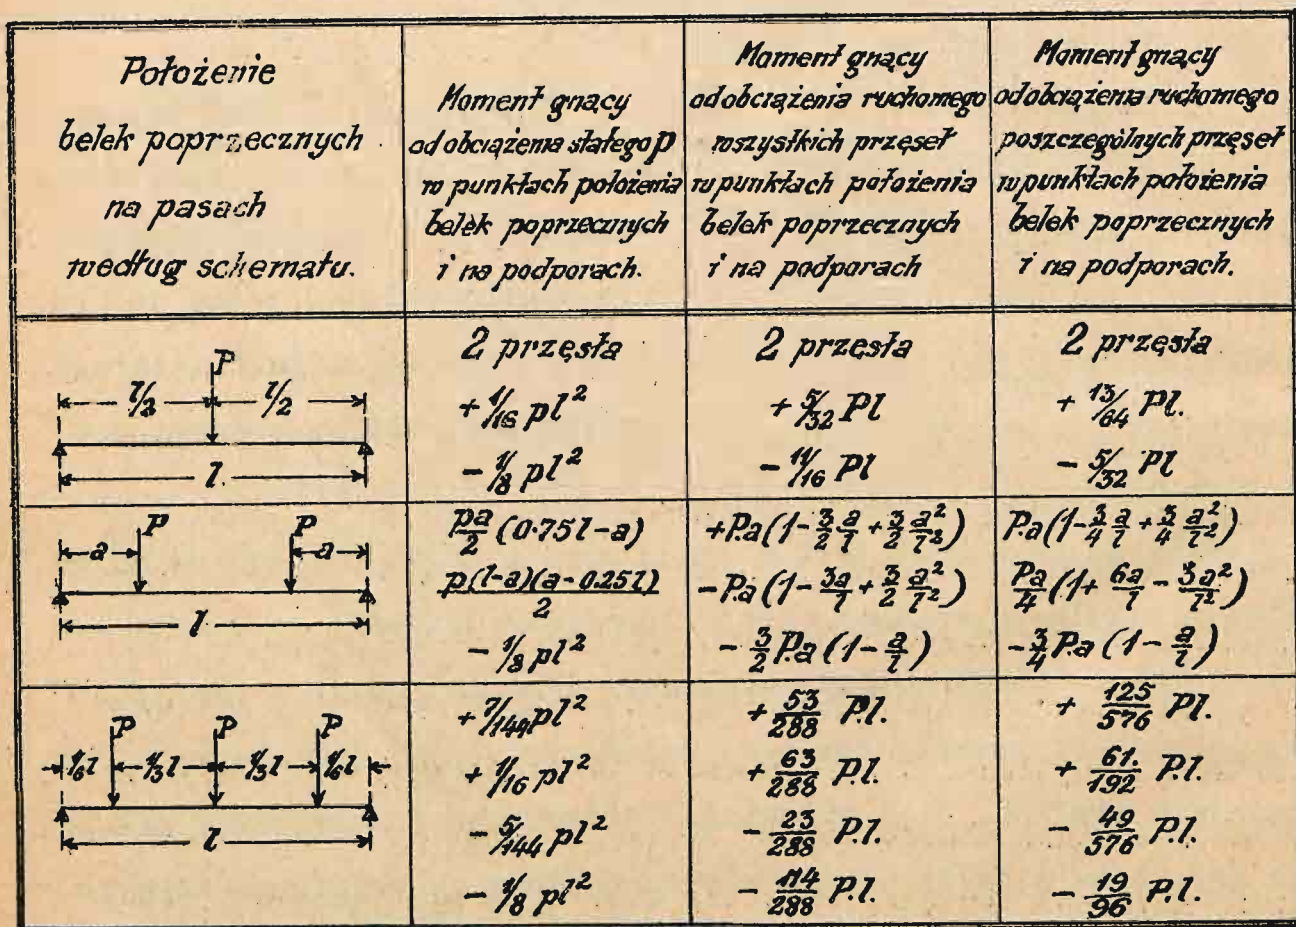 Położenie
belek poprzecznych
na pasach
według schematu.
Moment gnący
od obciążenia stałego p
w punktach położenia
belek poprzecznych
i na podporach.
Moment gnący
od obciążenia ruchomego
wszystkich przęseł
w punktach położenia
belek poprzecznych
i na podporach
Moment gnący
od obciążenia ruchomego
poszczególnych przęseł
w punktach położenia
belek poprzecznych
i na podporach.
P
l/2 l/2
l
2 przęsła
+ 1/16 pl²
- 1/8 pl²
2 przęsła
+ 5/32 Pl
- 11/16 Pl
2 przęsła
+ 13/64 Pl.
- 5/32 Pl
P P
a a
l
pa/2 (0.75l-a)
p(l-a)(a-0.25l)/2
- 1/8 pl²
+P.a(1-3/2 a/l + 3/2 a²/l²)
-P.a(1-3a/l + 3/2 a²/l²)
- 3/2 P.a (1-a/l)
P.a(1-3/4 a/l + 3/4 a²/l²)
Pa/4 (1+ 6a/l - 3a²/l²)
-3/4 P.a (1-a/l)
P P P
1/6l 1/3l 1/3l 1/6l
l
+ 7/144 pl²
+ 1/16 pl²
- 5/144 pl²
- 1/8 pl²
+ 53/288 P.l.
+ 63/288 P.l.
- 23/288 P.l.
- 114/288 P.l.
+ 125/576 P.l.
+ 61./192 P.l.
- 49/576 P.l.
- 19/96 P.l.